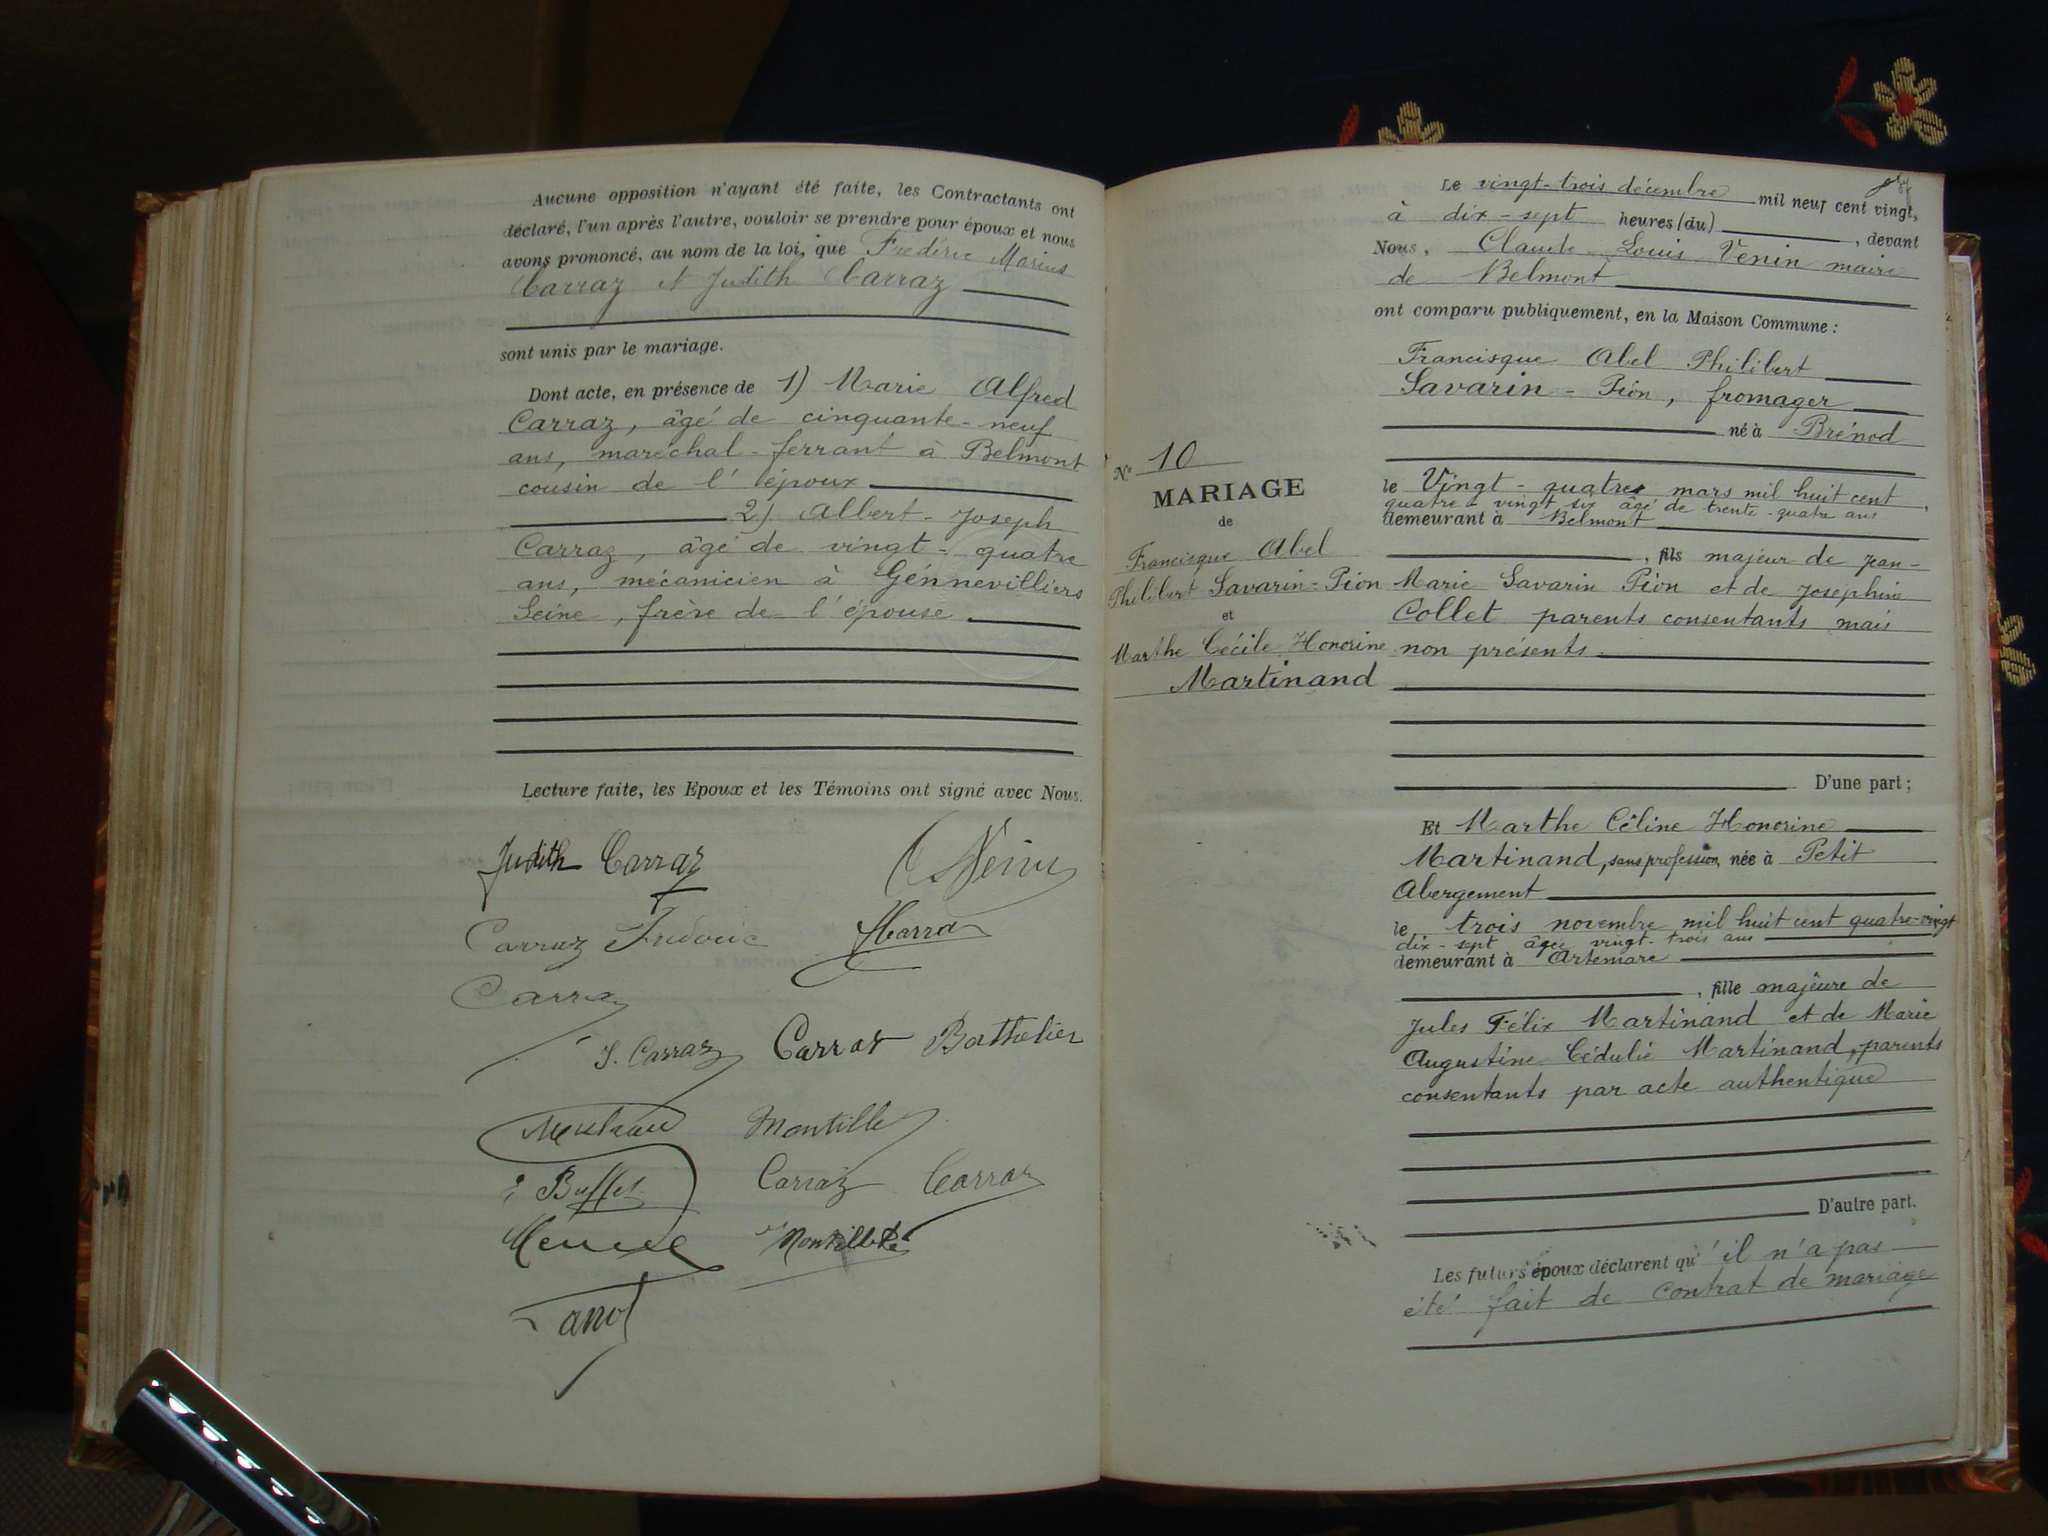 Aucune opposition n'ayant été faite, les Contractants ont
déclaré, l'un après l'autre, vouloir se prendre pour époux et nous
avons prononcé, au nom de la loi, que Frédéric Marius
Carraz et Judith Carraz
sont unis par le mariage.
Dont acte, en présence de 1) Marie Alfred
Carraz, âgé de cinquante-neuf
ans, maréchal-ferrant à Belmont
cousin de l'époux
2) Albert-Joseph
Carraz, âgé de vingt-quatre
ans, mécanicien à Génnevilliers
Seine, frère de l'épouse.
Lecture faite, les Epoux et les Témoins ont signé avec Nous.
Judith Carraz
Carraz Frédéric
Carraz
J. Carraz Carraz Barthelier
Montillet
Buffet Carraz Carraz
Montillet
Le vingt-trois décembre mil neuf cent vingt,
à dix-sept heures (du) , devant
Nous, Claude Louis Venin maire
de Belmont
ont comparu publiquement, en la Maison Commune :
Francisque Abel Philibert
Savarin-Pion, fromager
né à Brénod
le Vingt-quatre mars mil huit cent
quatre-vingt six âgé de trente-quatre ans
demeurant à Belmont
, fils majeur de Jean-
Marie Savarin Pion et de Joséphine
Collet parents consentants mais
non présents.
D'une part ;
N° 10
MARIAGE
de
Francisque Abel
Philibert Savarin-Pion
et
Marthe Cécile Honorine
Martinand
Et Marthe Céline Honorine
Martinand, sans profession, née à Petit
Abergement
le trois novembre mil huit cent quatre-vingt
dix-sept âgée vingt-trois ans
demeurant à Artemare
, fille majeure de
Jules Félix Martinand et de Marie
Augustine Cédulie Martinand, parents
consentants par acte authentique
D'autre part.
Les futurs époux déclarent qu'il n'a pas
été fait de contrat de mariage